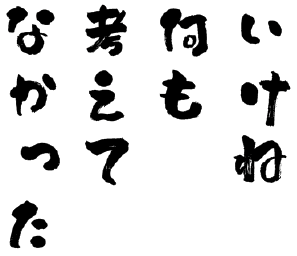 いけね
何も
考えて
なかった